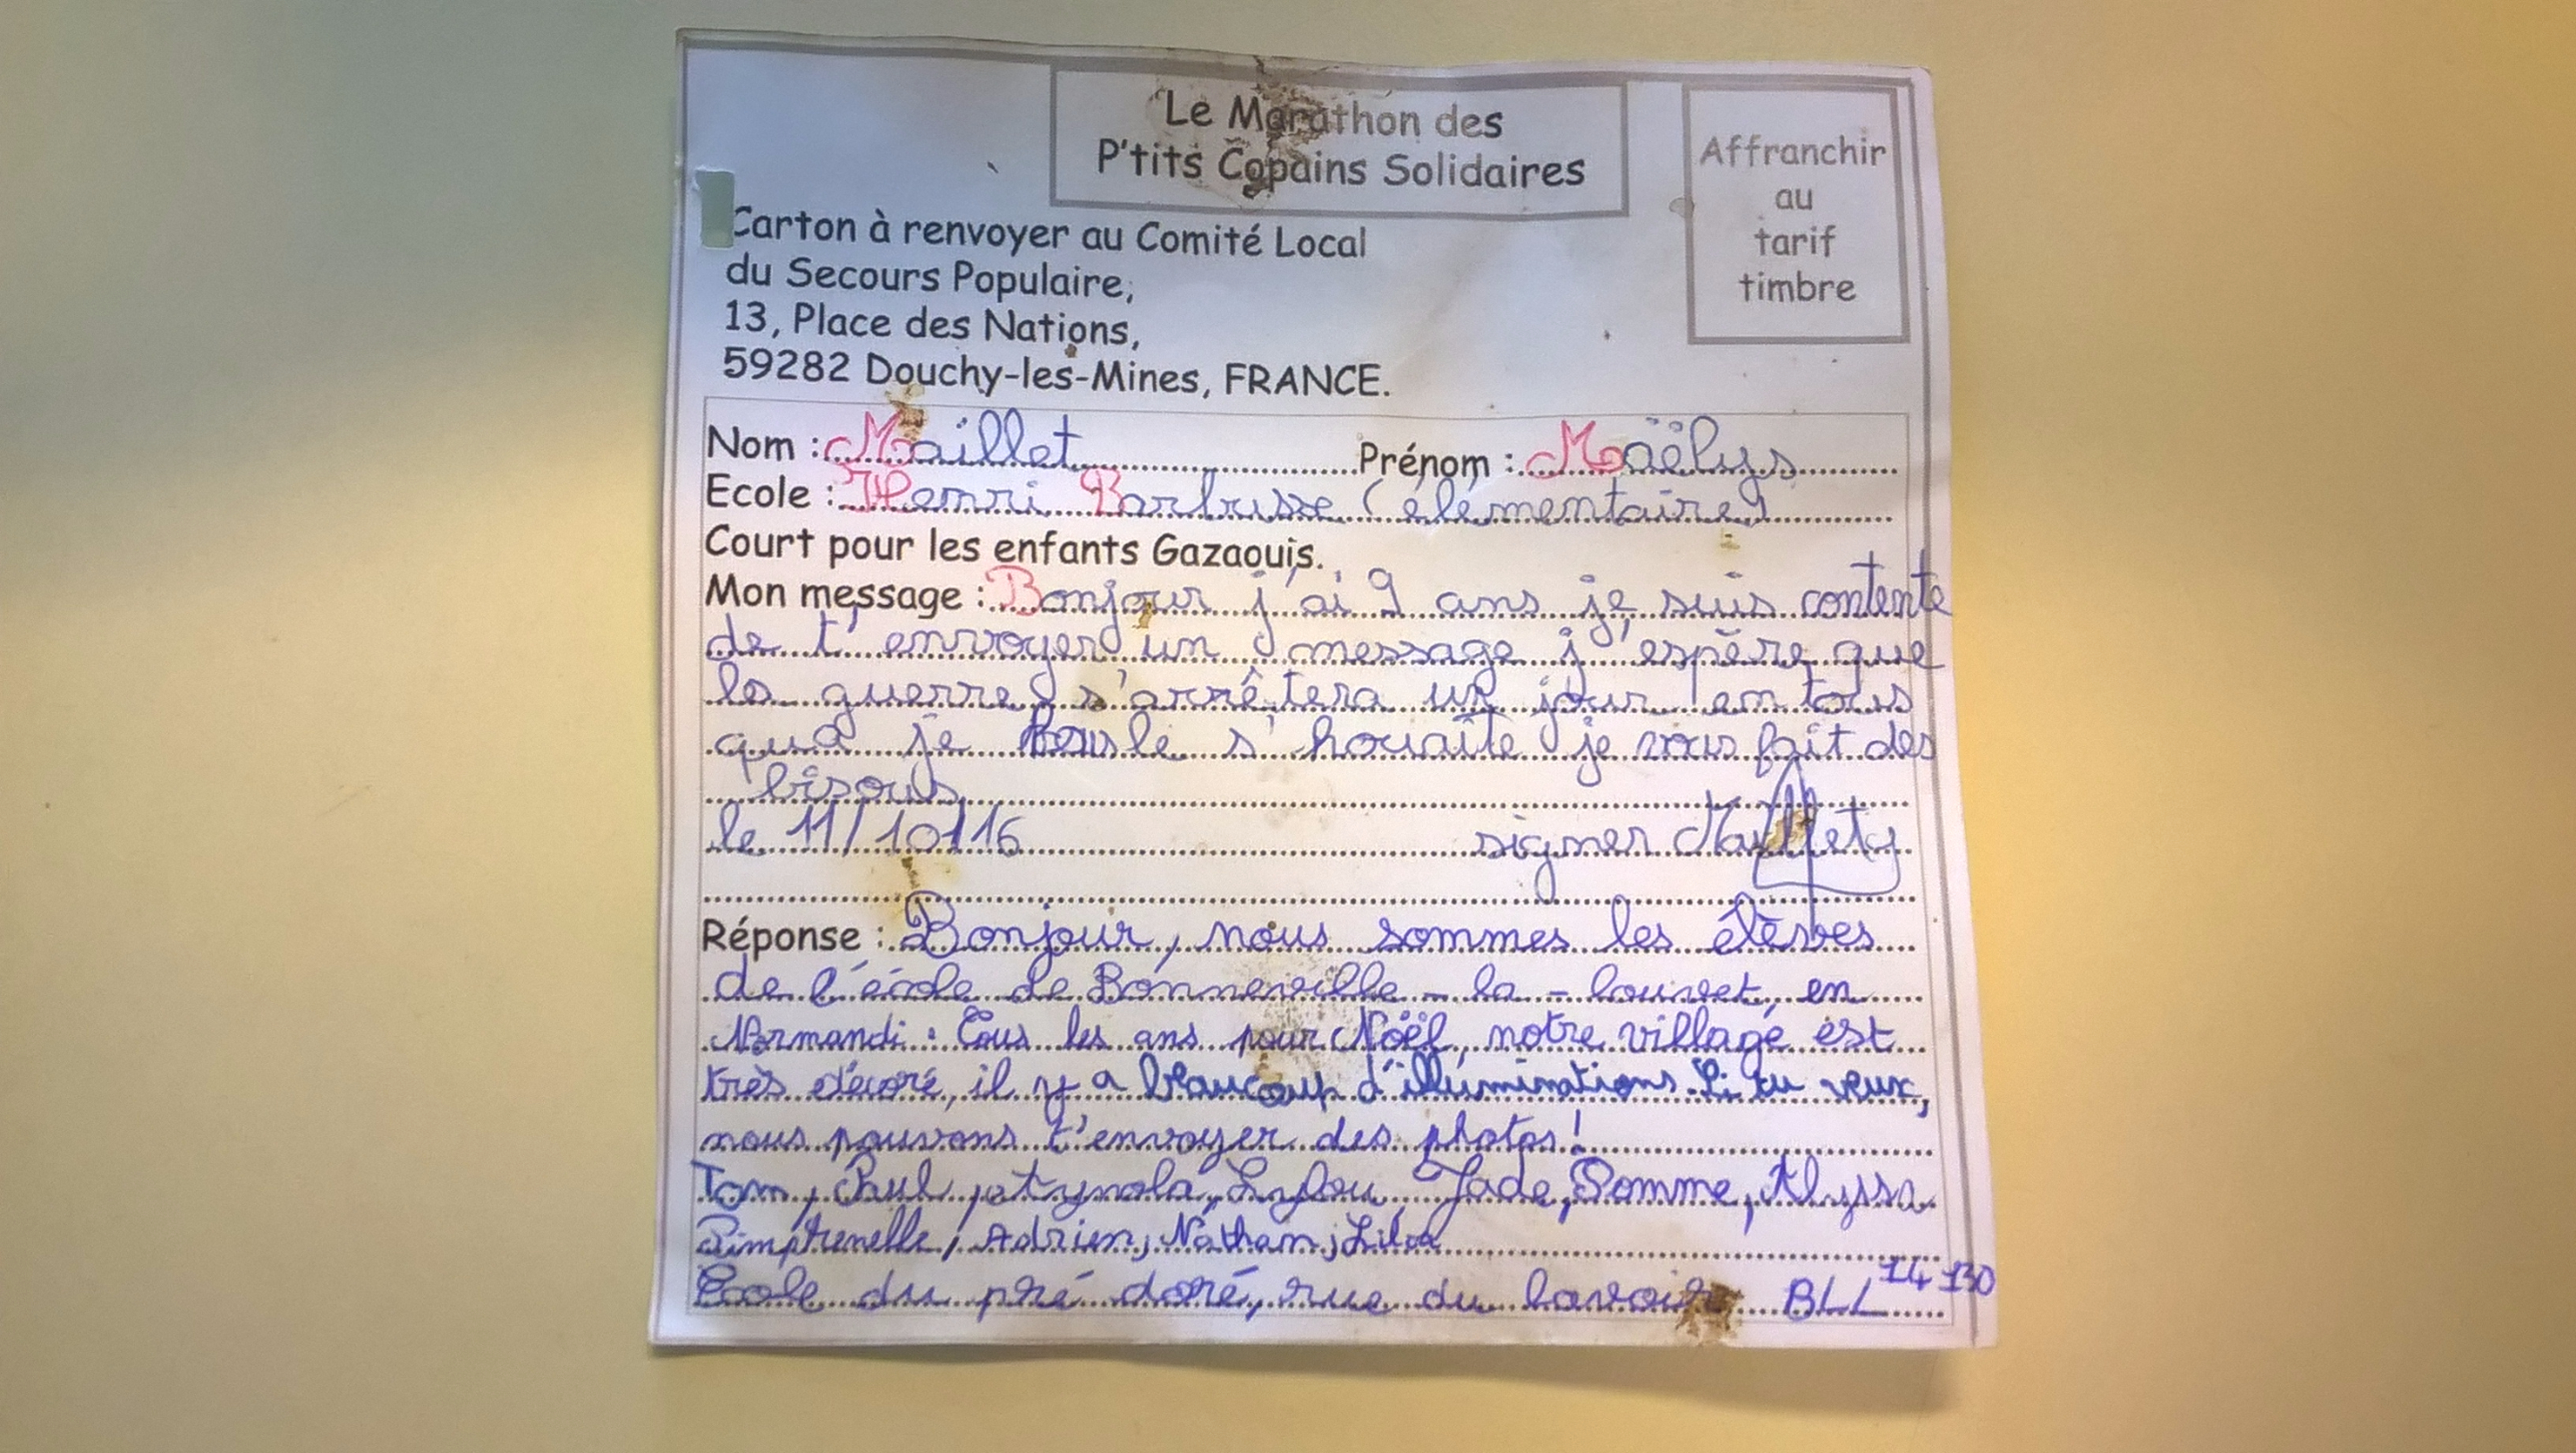 Le Marathon des
P'tits Copains Solidaires
Affranchir
au
tarif
timbre
Carton à renvoyer au Comité Local
du Secours Populaire,
13, Place des Nations,
59282 Douchy-les-Mines, FRANCE.
Nom : Maillet Prénom : Maëlys
Ecole : Henri Barbusse (élémentaire)
Court pour les enfants Gazaouis.
Mon message : Bonjour j'ai 9 ans je suis contente
de t'envoyer un message j'espère que
la guerre s'arrêtera un jour en tous
qua je le s'houaite je vous fait des
bisous
le 11/10/16 signer Maillet
Réponse : Bonjour, nous sommes les élèves
de l'école de Bonneville-la-louvet, en
Normandi. Tous les ans pour Nöël, notre village est
très décoré, il y a beaucoup d'illuminations. Si tu veux,
nous pouvons t'envoyer des photos!
Tom, Paul, Lylou, Jade, Pomme, Alyssa
Pimprenelle, Adrien, Nathan, Lilou
Ecole du pré doré, rue du lavoir BLL 14130